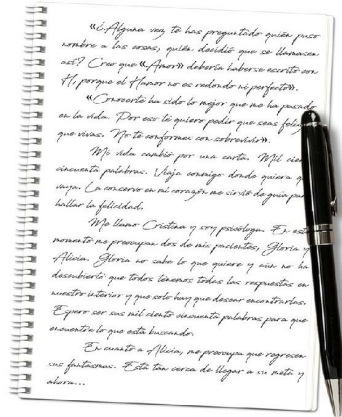 «¿Alguna vez te has preguntado quién puso
nombre a las cosas, quién decidió que se llamasen
así? Creo que «Amor» debería haberse escrito con
H, porque el Hamor no es redondo ni perfecto».
«Conocerte ha sido lo mejor que me ha pasado
en la vida. Por eso te quiero pedir que seas feliz,
que vivas. No te conformes con sobrevivir».
Mi vida cambió por una carta. Mil cien
cincuenta palabras. Viaja conmigo donde quiera q
vaya. La conservo en mi corazón, me sirvió de guía par
hallar la felicidad.
Me llamo Cristina y soy psicóloga. En est
momento me preocupan dos de mis pacientes, Gloria y
Alicia. Gloria no sabe lo que quiere y aún no ha
descubierto que todos tenemos todas las respuestas en
nuestro interior y que solo hay que desear encontrarlas.
Espero ser sus mil ciento cincuenta palabras para que
encuentre lo que está buscando.
En cuanto a Alicia, me preocupa que regresen
sus fantasmas. Está tan cerca de llegar a su meta y
ahora...